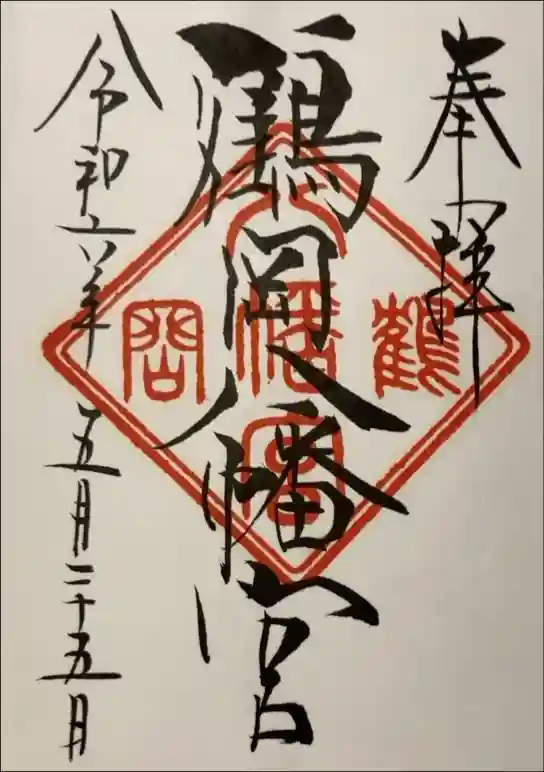 奉拝
鶴岡八幡宮
鶴
八幡宮
岡
令和六年五月二十五日